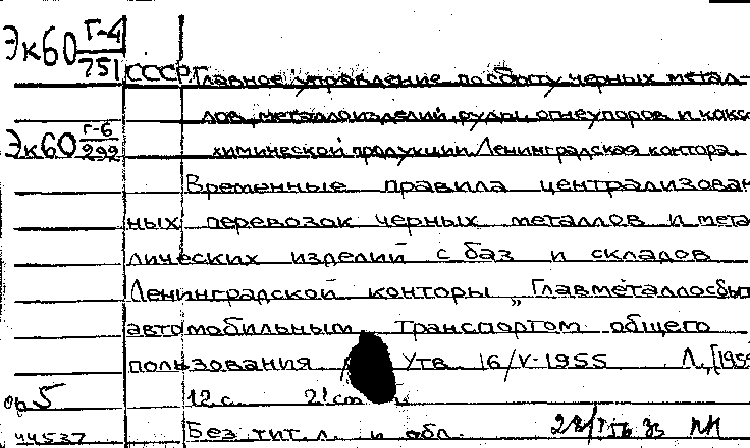 Эк60 Г-4/751
СССР. Главное управление по сбыту черных метал-
лов, металлоизделий, руды, огнеупоров и коксо
Эк60 Г-6/292
химической продукции. Ленинградская контора.
Временные правила централизован
ных перевозок черных металлов и мета
лических изделий с баз и складов
Ленинградской конторы „Главметаллосбыт
автомобильным транспортом общего
пользования. Утв. 16/V-1955 Л., [1955
12 с. 21 cm
ор 5
Без тит. л. и обл.
44537